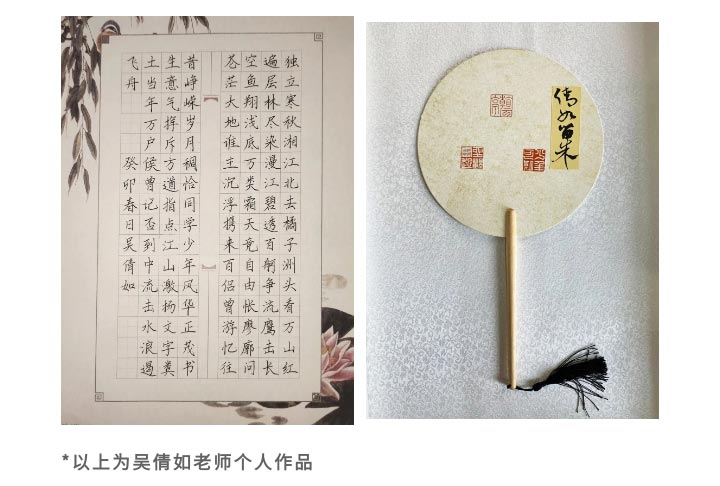 独立寒秋湘江北去橘子洲头看万山红
遍层林尽染漫江碧透百舸争流鹰击长
空鱼翔浅底万类霜天竞自由怅廖廓问
苍茫大地谁主沉浮携来百侣曾游忆往
昔峥嵘岁月稠恰同学少年风华正茂书
生意气挥斥方遒指点江山激扬文字粪
土当年万户侯曾记否到中流击水浪遏
飞舟 癸卯春日吴倩如
倩如
*以上为吴倩如老师个人作品